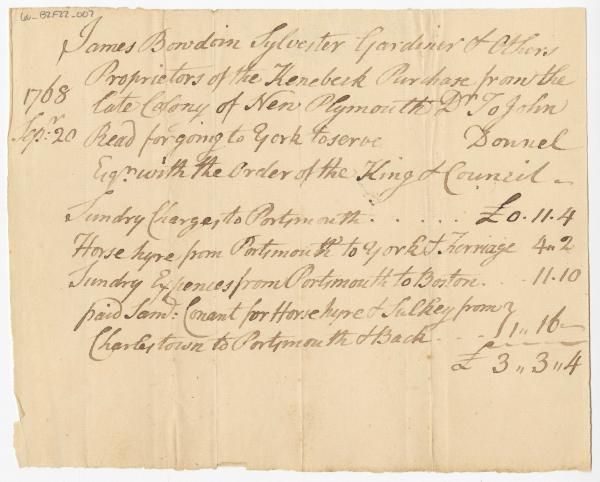 60-B2F22-007
James Bowdoin Sylvester Gardiner & Others
Proprietors of the Kenebeck Purchase from the
1768 late Colony of New Plymouth Dr. To John
Sepr. 20 Read for going to York to serve Donnel
Esqr. with the Order of the King & Council
Sundry Charges to Portsmouth . . . . . . £0.11.4
Horse hyre from Portsmouth to York & Ferriage 4"2
Sundry Expences from Portsmouth to Boston . . . 11.10
paid Saml: Conant for Horse hyre & Sulkey from
Charlestown to Portsmouth & Back . . . . 1"16"
£ 3"3"4